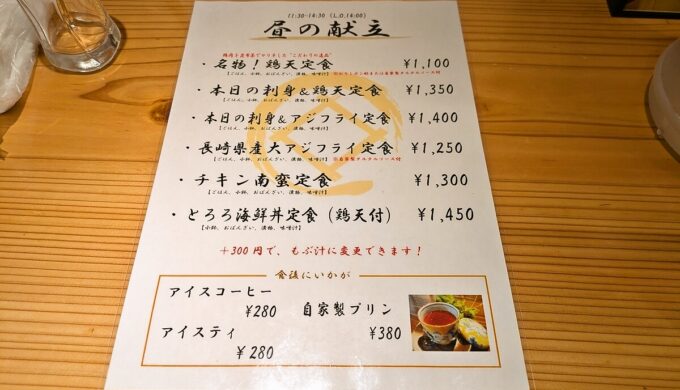 11:30-14:30 (L.O.14:00)
昼の献立
・名物！鶏天定食 ¥1,100
【ごはん、小鉢、おばんざい、漬物、味噌汁】
・本日の刺身&鶏天定食 ¥1,350
【ごはん、小鉢、おばんざい、漬物、味噌汁】
・本日の刺身&アジフライ定食 ¥1,400
【ごはん、小鉢、おばんざい、漬物、味噌汁】
・長崎県産大アジフライ定食 ¥1,250
【ごはん、小鉢、おばんざい、漬物、味噌汁】※自家製タルタルソース付
・チキン南蛮定食 ¥1,300
【ごはん、小鉢、おばんざい、漬物、味噌汁】
・とろろ海鮮丼定食（鶏天付） ¥1,450
【小鉢、おばんざい、漬物、味噌汁】
+300円で、もぶ汁に変更できます！
食後にいかが
アイスコーヒー
¥280
自家製プリン
¥380
アイスティ
¥280